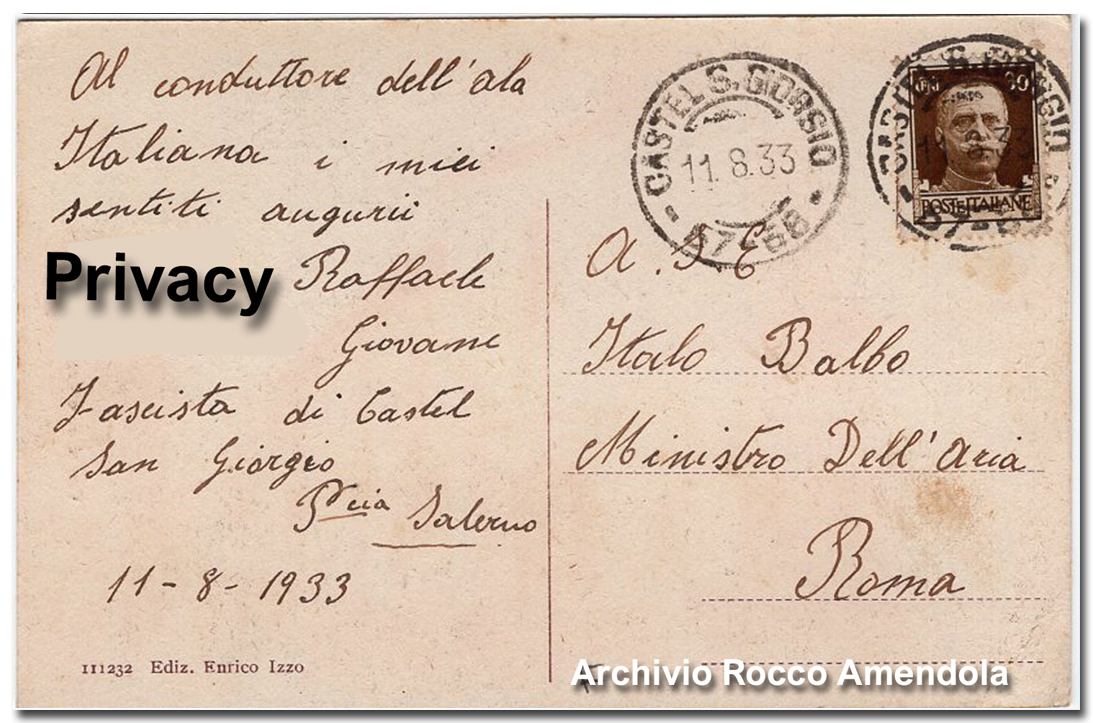 Al conduttore dell'ala
Italiana i miei
sentiti augurii
Privacy Raffaele
Giovane
Fascista di Castel
San Giorgio
Pcia Salerno
11-8-1933
111232 Ediz. Enrico Izzo
CASTEL S. GIORGIO
11.8.33
57-66
POSTE ITALIANE
A. S E
Italo Balbo
Ministro Dell'aria
Roma
Archivio Rocco Amendola